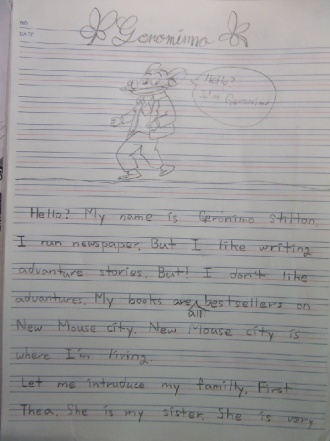 NO.
DATE
Geronimo
Hello?
I'm Geronimo
Hello? My name is Geronimo Stilton.
I run newspaper. But I like writing
advanture stories. But! I don't like
advantures. My books are all bestsellers on
New Mouse city. New Mouse city is
where I'm living.
Let me intruduce my familly. First
Thea. She is my sister. She is very